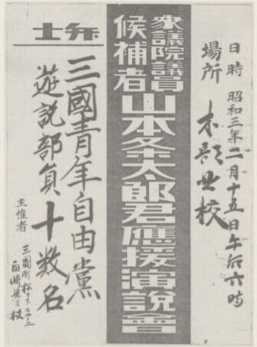 日時 昭和三年二月十五日午后六時
場所
衆議院議員
候補者
山本条太郎君應援演説會
弁士
三國青年自由黨
遊説部員十数名
主催者